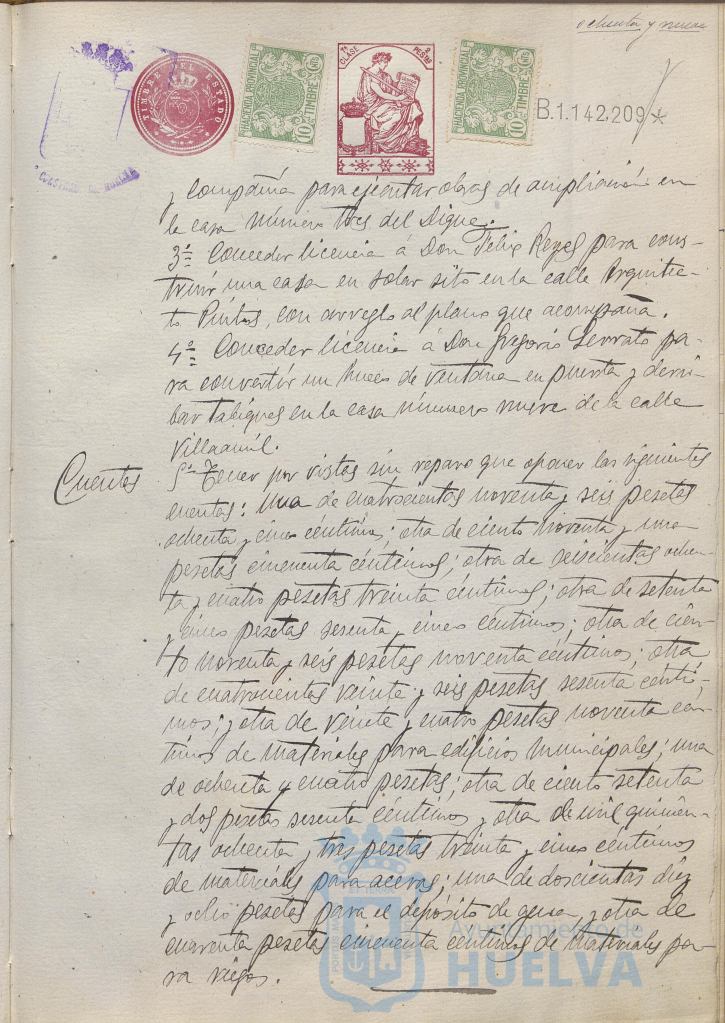 ochenta y nueve
TIMBRE DEL ESTADO
HACIENDA PROVINCIAL
10 CTS
TIMBRE
7ª CLASE
2 PESETAS
HACIENDA PROVINCIAL
10 CTS
TIMBRE
B.1.142,209 *
y Compañía para ejecutar obras de ampliación en
la casa número tres del Dique.
3º Conceder licencia á Don Félix Reyes para cons-
truir una casa en solar sito en la calle Arquitec-
to Pintos, con arreglo al plano que acompaña.
4º Conceder licencia á Don Gregorio Serrato pa-
ra convertir un hueco de ventana en puerta y derri-
bar tabiques en la casa número nueve de la calle
Villaamil.
Cuentas
5º Tener por vistas sin reparo que oponer las siguientes
cuentas: una de cuatrocientas noventa y seis pesetas
ochenta y cinco céntimos; otra de ciento noventa y una
pesetas cincuenta céntimos; otra de seiscientas ochen-
ta y cuatro pesetas treinta céntimos; otra de setenta
y cinco pesetas sesenta y cinco céntimos; otra de cien-
to noventa y seis pesetas noventa céntimos; otra
de cuatrocientas veinte y seis pesetas sesenta cénti-
mos; y otra de veinte y cuatro pesetas noventa cén-
timos de materiales para edificios municipales; una
de ochenta y cuatro pesetas; otra de ciento setenta
y dos pesetas sesenta céntimos y otra de mil quinien-
tas ochenta y tres pesetas treinta y cinco céntimos
de materiales para aceras; una de doscientas diez
y ocho pesetas para el depósito de agua, y otra de
cuarenta pesetas cincuenta céntimos de materiales pa-
ra riegos.
Ayuntamiento de
HUELVA